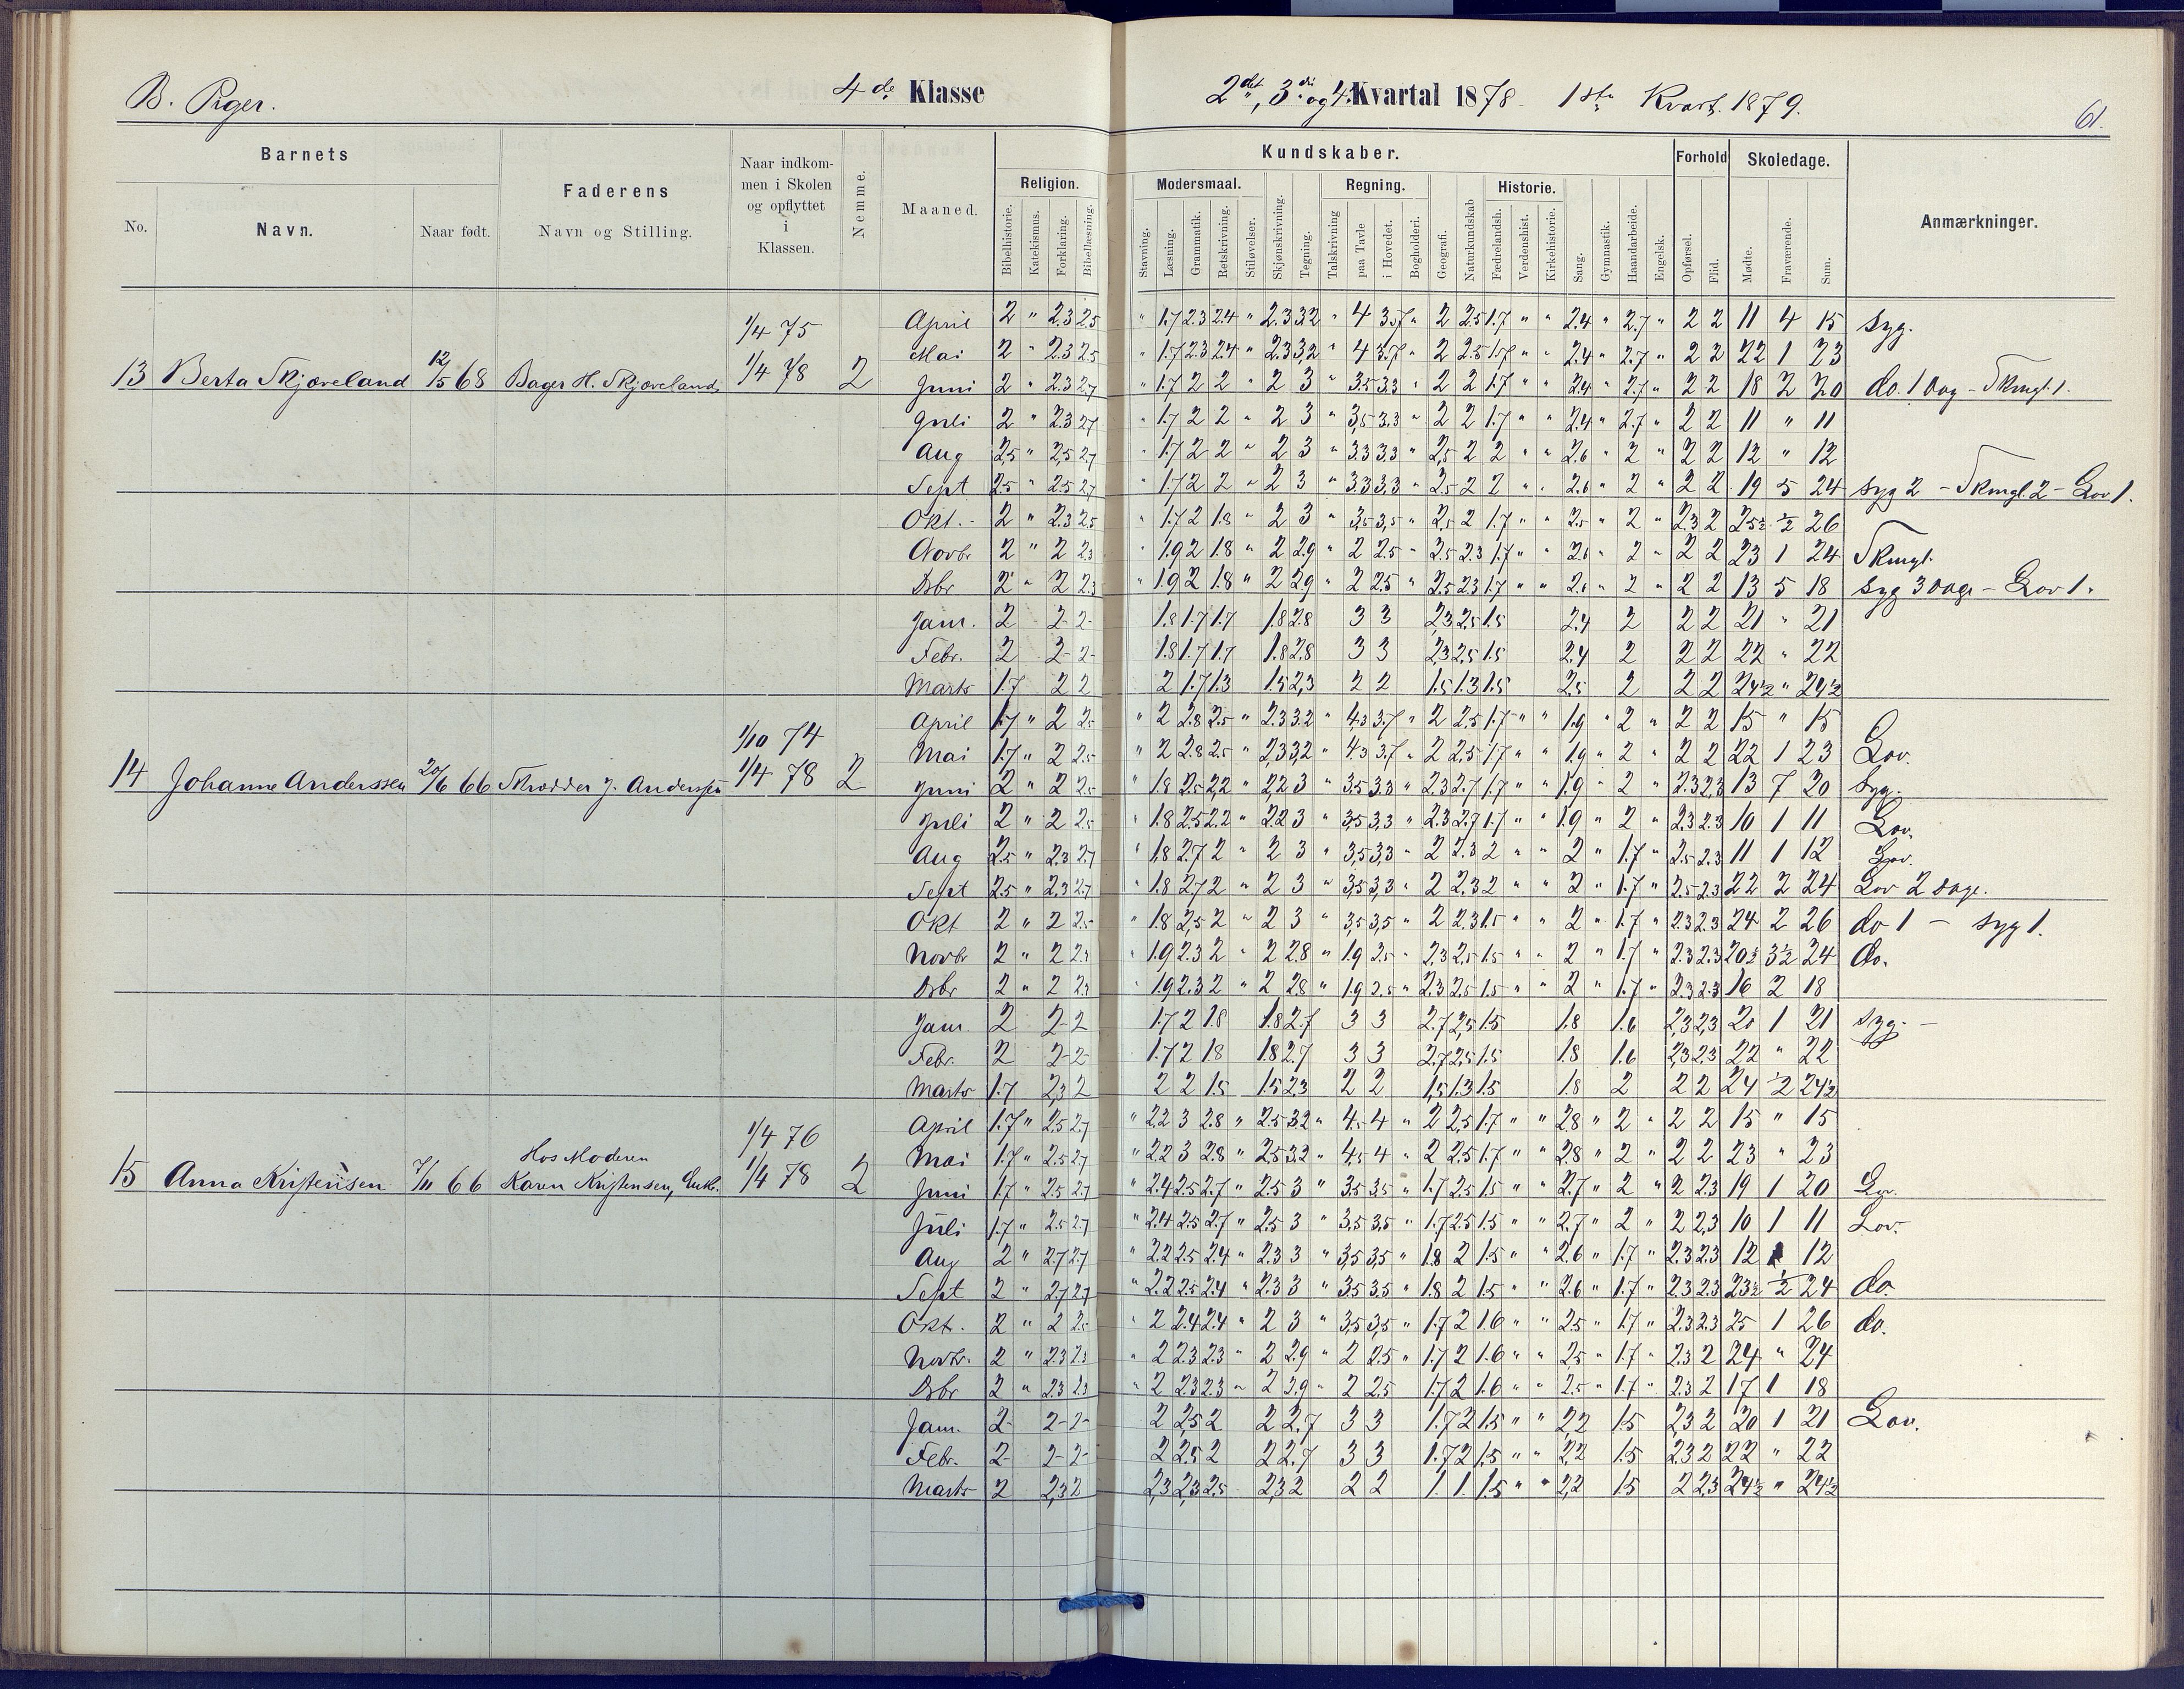 B. Piger.
4de Klasse
2det, 3die og 4. Kvartal 1878 1ste Kvart. 1879.
61.
Barnets
Faderens
Naar indkom-
men i Skolen
og opflyttet
i
Klassen.
Nemme.
Maaned.
Religion.
Kundskaber.
Modersmaal.
Regning.
Historie.
Forhold
Skoledage.
Anmærkninger.
No.
Navn.
Naar født.
Navn og Stilling.
Bibelhistorie.
Katekismus.
Forklaring.
Bibellæsning.
Stavning.
Læsning.
Grammatik.
Retskrivning.
Stiløvelser.
Skjønskrivning.
Tegning.
Talskrivning
paa Tavle
i Hovedet.
Bogholderi.
Geografi.
Naturkundskab
Fædrelandsh.
Verdenshist.
Kirkehistorie.
Sang.
Gymnastik.
Haandarbeide.
Engelsk.
Opførsel.
Flid.
Mødte.
Fraværende.
Sum.
1/4 75
13 Berta Skjæveland 12/5 68 Bager H. Skjæveland 1/4 78 2
April 2 " 2.3 2.5 " 1.7 2.3 2.4 " 2.3 3.2 " 4 3.7 " 2 2.5 1.7 " " 2.4 " 2.7 " 2 2 11 4 15 Syg.
Mai 2 " 2.3 2.5 " 1.7 2.3 2.4 " 2.3 3.2 " 4 3.7 " 2 2.5 1.7 " " 2.4 " 2.7 " 2 2 22 1 23
Juni 2 " 2.3 2.7 " 1.7 2 2 " 2 3 " 3.5 3.3 " 2 2 1.7 " " 2.4 " 2.7 " 2 2 18 2 20 do. 1 Dag - Skmgl. 1.
Juli 2 " 2.3 2.7 " 1.7 2 2 " 2 3 " 3.5 3.3 " 2 2 1.7 " " 2.4 " 2.7 " 2 2 11 " 11
Aug 2.5 " 2.5 2.7 " 1.7 2 2 " 2 3 " 3.3 3.3 " 2.5 2 2 " " 2.6 " 2 " 2 2 12 " 12
Sept 2.5 " 2.5 2.7 " 1.7 2 2 " 2 3 " 3.3 3.3 " 2.5 2 2 " " 2.6 " 2 " 2 2 19 5 24 Syg 2 - Skmgl. 2 - Lov 1.
Okt. 2 " 2.3 2.5 " 1.7 2 1.8 " 2 3 " 3.5 3.5 " 2.5 2 1.7 " " 2.5 " 2 " 2.3 2 25½ ½ 26
Novbr 2 " 2 2.3 " 1.9 2 1.8 " 2 2.9 " 2 2.5 " 2.5 2.3 1.7 " " 2.6 " 2 " 2 2 23 1 24 Skmgl.
Dsbr 2 " 2 2.3 " 1.9 2 1.8 " 2 2.9 " 2 2.5 " 2.5 2.3 1.7 " " 2.6 " 2 " 2 2 13 5 18 Syg 3 Dage - Lov 1.
Jam. 2 2 2 1.8 1.7 1.7 1.8 2.8 3 3 2.3 2.5 1.5 2.4 2 2 2 21 " 21
Febr. 2 2 2 1.8 1.7 1.7 1.8 2.8 3 3 2.3 2.5 1.5 2.4 2 2 2 22 " 22
Marts 1.7 2 2 2 1.7 1.3 1.5 2.3 2 2 1.5 1.3 1.5 2.5 2 2 2 24½ " 24½
1/10 74
14 Johanne Anderssen 20/6 66 Skrædder J. Anderssen 1/4 78 2
April 1.7 " 2 2.5 " 2 2.8 2.5 " 2.3 3.2 " 4.3 3.7 " 2 2.5 1.7 " " 1.9 " 2 " 2 2 15 " 15
Mai 1.7 " 2 2.5 " 2 2.8 2.5 " 2.3 3.2 " 4.3 3.7 " 2 2.5 1.7 " " 1.9 " 2 " 2 2 22 1 23 Lov.
Juni 2 " 2 2.5 " 1.8 2.5 2.2 " 2.2 3 " 3.5 3.3 " 2.3 2.7 1.7 " " 1.9 " 2 " 2.3 2.3 13 7 20 Syg.
Juli 2 " 2 2.5 " 1.8 2.5 2.2 " 2.2 3 " 3.5 3.3 " 2.3 2.7 1.7 " " 1.9 " 2 " 2.3 2.3 10 1 11 Lov.
Aug 2.5 " 2.3 2.7 " 1.8 2.7 2 " 2 3 " 3.5 3.3 " 2 2.3 2 " " 2 " 1.7 " 2.5 2.3 11 1 12 Lov.
Sept 2.5 " 2.3 2.7 " 1.8 2.7 2 " 2 3 " 3.5 3.3 " 2 2.3 2 " " 2 " 1.7 " 2.5 2.3 22 2 24 Lov 2 Dage.
Okt 2 " 2 2.5 " 1.8 2.5 2 " 2 3 " 3.5 3.5 " 2 2.3 1.5 " " 2 " 1.7 " 2.3 2.3 24 2 26 do 1 - Syg 1.
Novbr 2 " 2 2.3 " 1.9 2.3 2 " 2 2.8 " 1.9 2.5 " 2.3 2.5 1.5 " " 2 " 1.7 " 2.3 2.3 20½ 3½ 24 do.
Dsbr 2 " 2 2.3 " 1.9 2.3 2 " 2 2.8 " 1.9 2.5 " 2.3 2.5 1.5 " " 2 " 1.7 " 2.3 2.3 16 2 18
Jam. 2 2 2 1.7 2 1.8 1.8 2.7 3 3 2.7 2.5 1.5 1.8 1.6 2.3 2.3 20 1 21 Syg. -
Febr. 2 2 2 1.7 2 1.8 1.8 2.7 3 3 2.7 2.5 1.5 1.8 1.6 2.3 2.3 22 " 22
Marts 1.7 2.3 2 2 2 1.5 1.5 2.3 2 2 1.5 1.3 1.5 1.8 2 2 2 24 ½ 24½
1/4 76
Hos Moderen
15 Anna Kristensen 7/11 66 Karen Kristensen, Enke. 1/4 78 2
April 1.7 " 2.5 2.7 " 2.2 3 2.8 " 2.5 3.2 " 4.5 4 " 2 2.5 1.7 " " 2.8 " 2 " 2 2 15 " 15
Mai 1.7 " 2.5 2.7 " 2.2 3 2.8 " 2.5 3.2 " 4.5 4 " 2 2.5 1.7 " " 2.8 " 2 " 2 2 23 " 23
Juni 1.7 " 2.5 2.7 " 2.4 2.5 2.7 " 2.5 3 " 3.5 3.5 " 1.7 2.5 1.5 " " 2.7 " 2 " 2 2.3 19 1 20 Lov.
Juli 1.7 " 2.5 2.7 " 2.4 2.5 2.7 " 2.5 3 " 3.5 3.5 " 1.7 2.5 1.5 " " 2.7 " 2 " 2 2.3 10 1 11 Lov.
Aug 2 " 2.7 2.7 " 2.2 2.5 2.4 " 2.3 3 " 3.5 3.5 " 1.8 2 1.5 " " 2.6 " 1.7 " 2.3 2.3 12 12
Sept 2 " 2.7 2.7 " 2.2 2.5 2.4 " 2.3 3 " 3.5 3.5 " 1.8 2 1.5 " " 2.6 " 1.7 " 2.3 2.3 23½ ½ 24 do.
Okt. 2 " 2 2.5 " 2 2.4 2.4 " 2 3 " 3.5 3.5 " 1.7 2 1.6 " " 2.5 " 1.7 " 2.3 2.3 25 1 26 do.
Novbr. 2 " 2.3 2.3 " 2 2.3 2.3 " 2 2.9 " 2 2.5 " 1.7 2 1.6 " " 2.5 " 1.7 " 2.3 2 24 " 24
Dsbr 2 " 2.3 2.3 " 2 2.3 2.3 " 2 2.9 " 2 2.5 1.7 2 1.6 " " 2.5 " 1.7 " 2.3 2 17 1 18
Jam. 2 2 2 2 2.5 2 2 2.7 3 3 1.7 2 1.5 " " 2.2 1.5 2.3 2 20 1 21 Lov.
Febr. 2 2 2 2 2.5 2 2 2.7 3 3 1.7 2 1.5 " " 2.2 1.5 2.3 2 22 " 22
Marts 2 2.3 2 2.3 2.3 2.5 2.3 2 2 2 1. 1. 1.5 " " 2.2 1.5 2 2.3 24½ " 24½